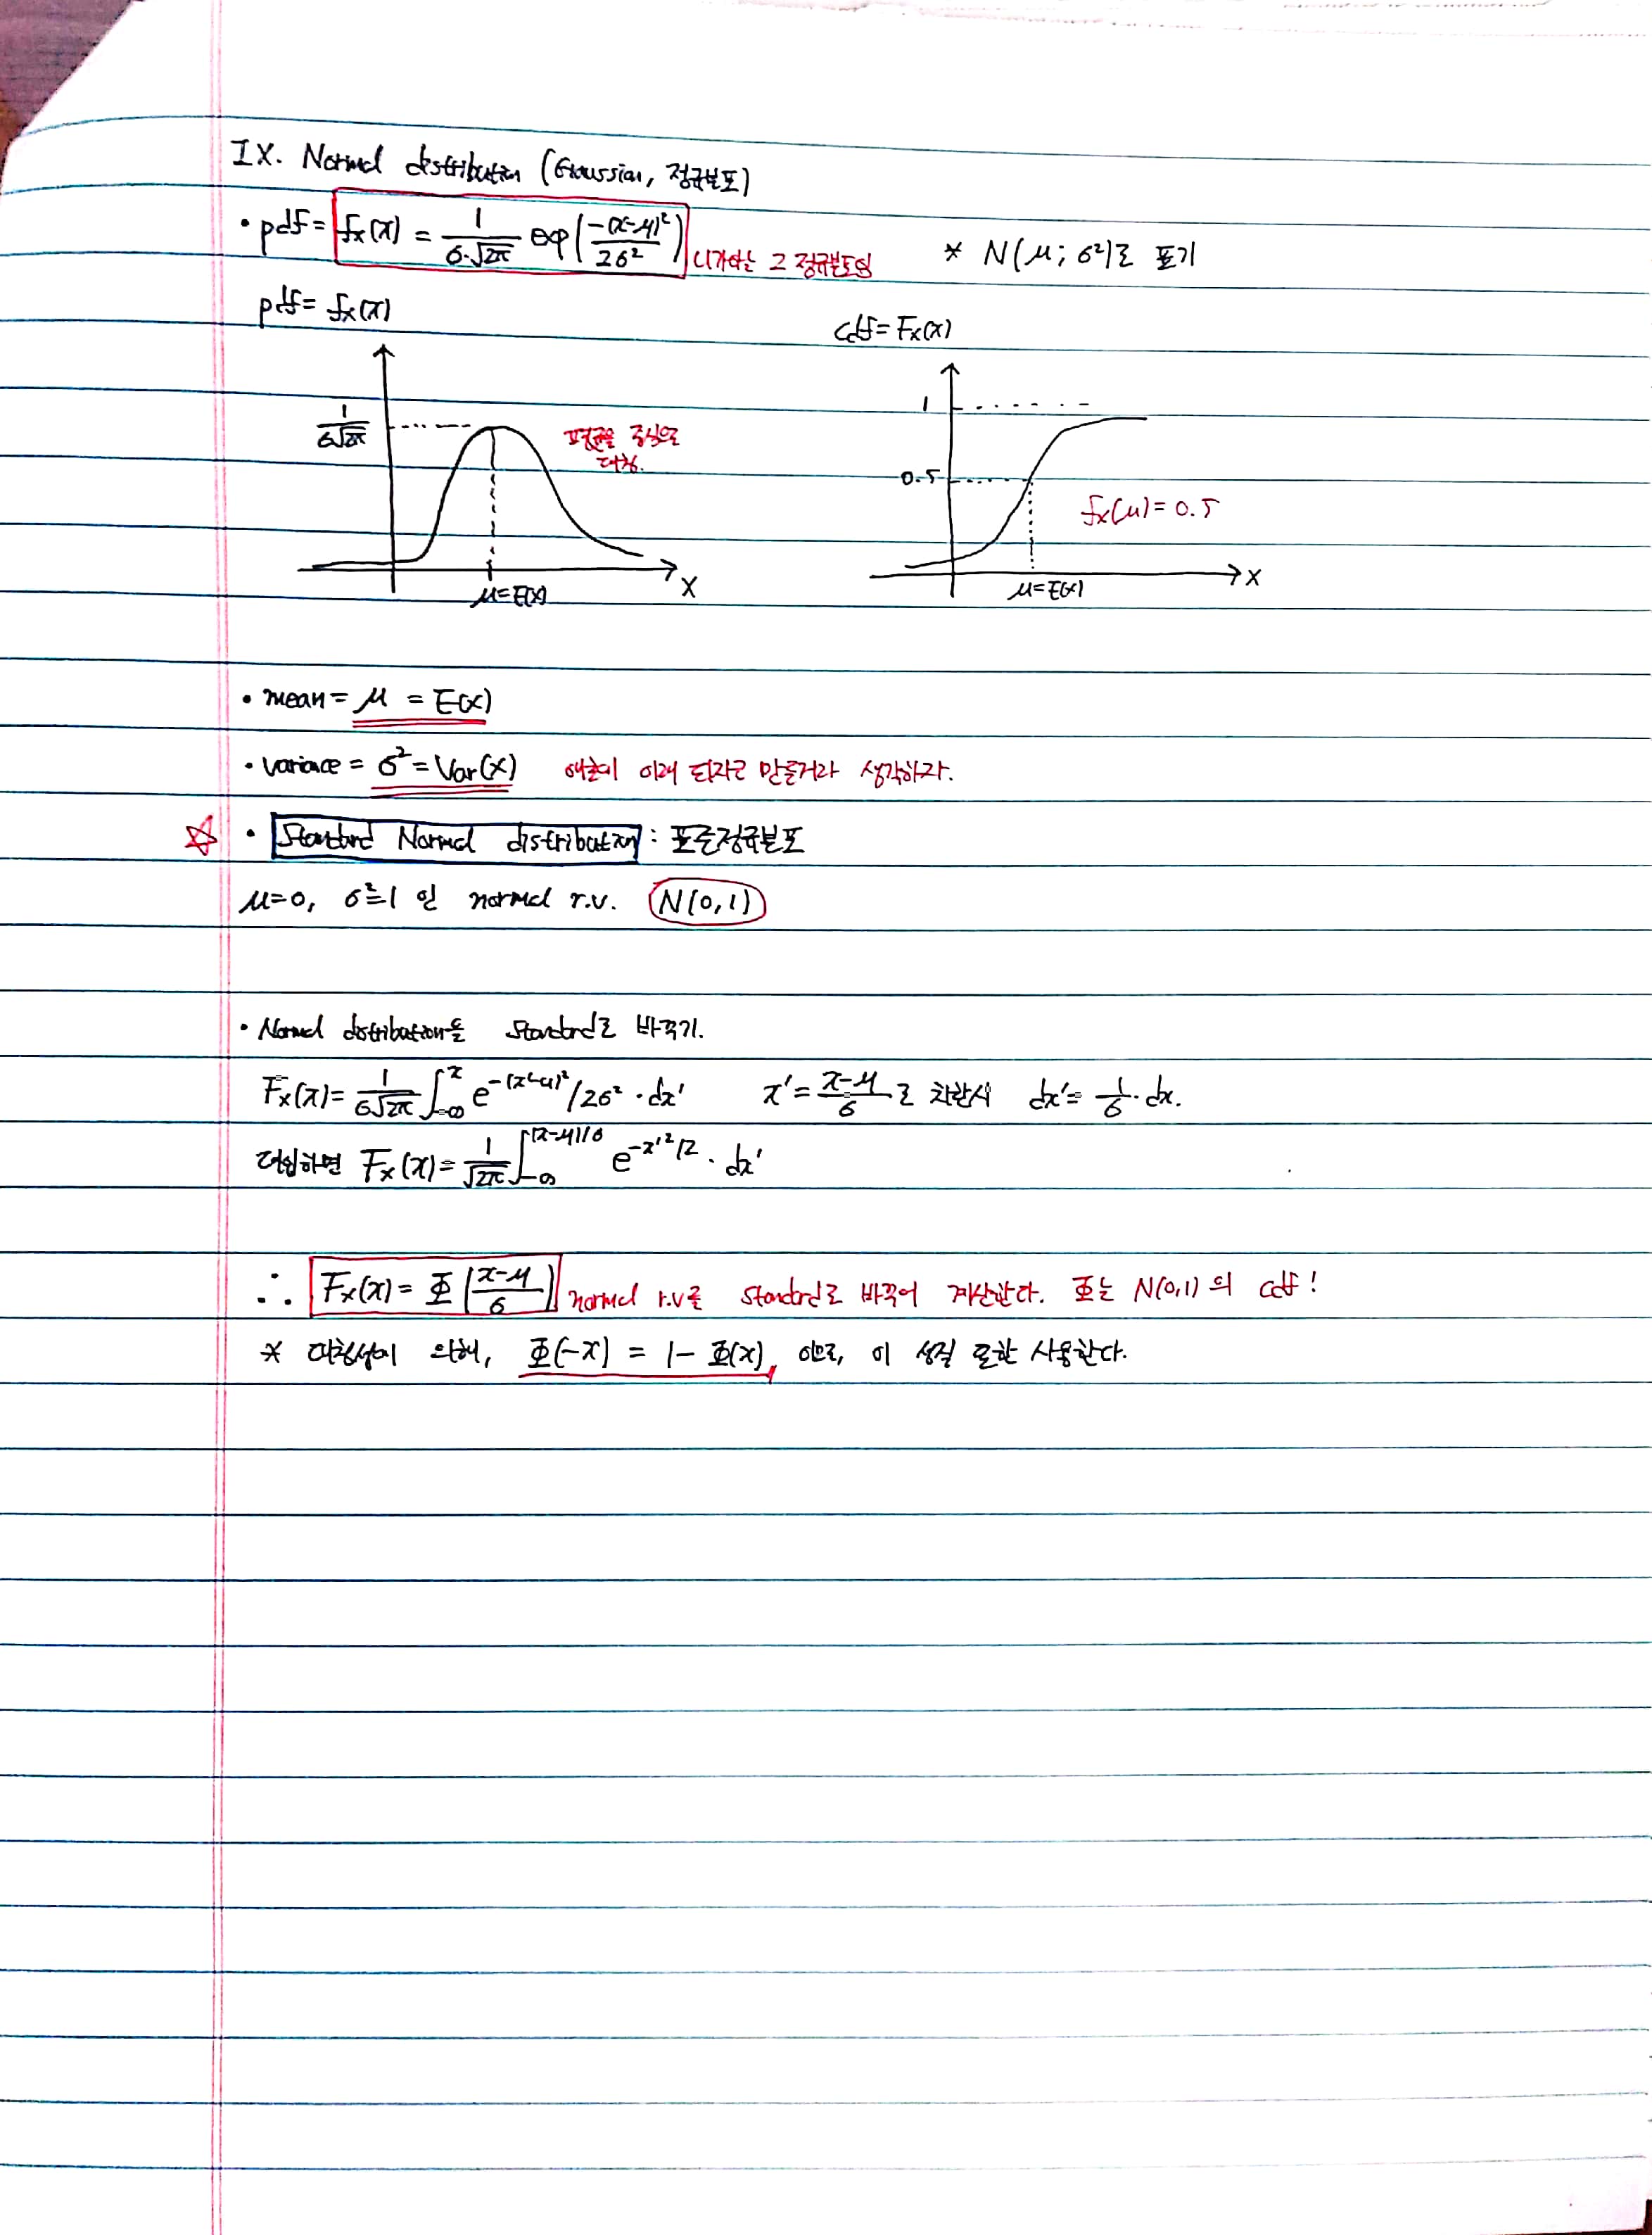 IX. Normal distribution (Gaussian, 정규분포)
• pdf = fx(x) = 1/(σ·√2π) exp(-(x-μ)²/2σ²) 니가아는 그 정규분포임 * N(μ; σ²)로 표기
pdf = fx(x)
cdf = Fx(x)
1/(σ√2π)
평균을 중심으로
대칭.
μ=E(x)
x
1
0.5
fx(μ) = 0.5
μ=E(x)
x
• mean = μ = E(x)
• variance = σ² = Var(x) 애초에 이래 되자고 만든거라 생각하자.
☆ • Standard Normal distribution : 표준정규분포
μ=0, σ²=1 인 normal r.v. N(0,1)
• Normal distribution을 Standard로 바꾸기.
Fx(x) = 1/(σ√2π) ∫_{-∞}^{x} e^{-(x'-μ)²/2σ²}·dx' x' = (x-μ)/σ 로 치환시 dx' = 1/σ·dx.
대입하면 Fx(x) = 1/√2π ∫_{-∞}^{(x-μ)/σ} e^{-x'²/2}·dx'
∴ Fx(x) = Φ((x-μ)/σ) normal r.v를 Standard로 바꾸어 계산한다. Φ는 N(0,1)의 cdf!
* 대칭성에 의해, Φ(-x) = 1-Φ(x), 이므로, 이 성질 또한 사용한다.